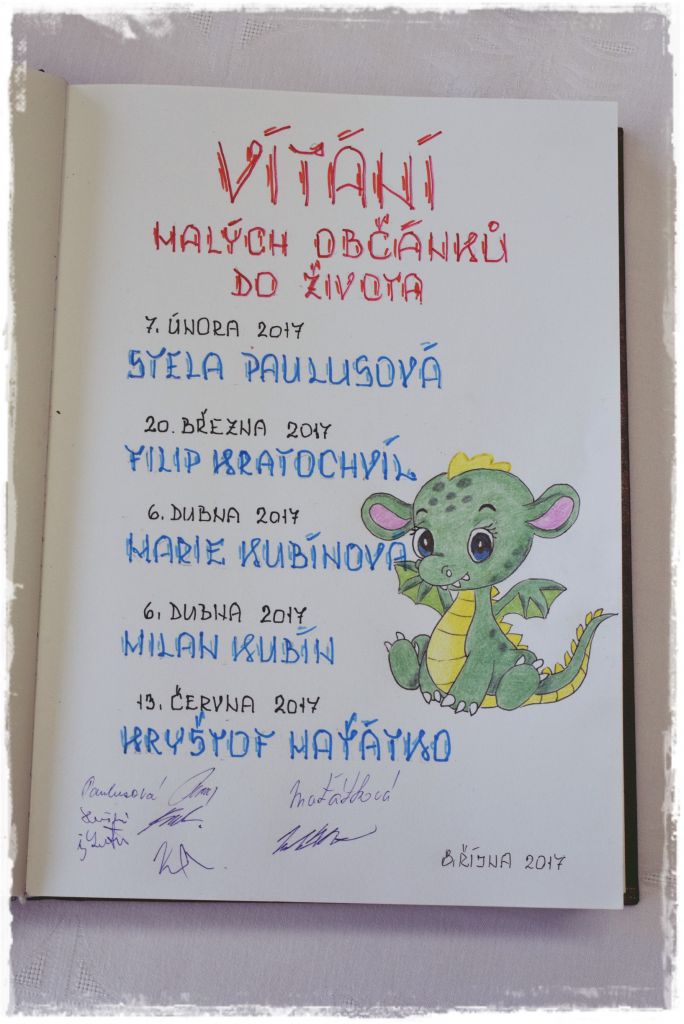 VÍTÁNÍ
MALÝCH OBČÁNKŮ
DO ŽIVOTA
7. ÚNORA 2017
STELA PAULUSOVÁ
20. BŘEZNA 2017
FILIP KRATOCHVÍL
6. DUBNA 2017
MARIE KUBÍNOVA
6. DUBNA 2017
MILAN KUBÍN
13. ČERVNA 2017
KRYŠTOF MAŤÁTKO
Paulusová
Maťátková
ŘÍJNA 2017